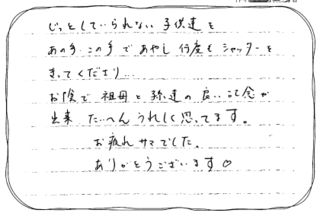 じっとしていられない子供達を
あの手この手であやし何度もシャッターを
きってくださり…
お陰で祖母と孫達の良い記念が
出来たいへんうれしく思ってます。
お疲れサマでした。
ありがとうございます♡